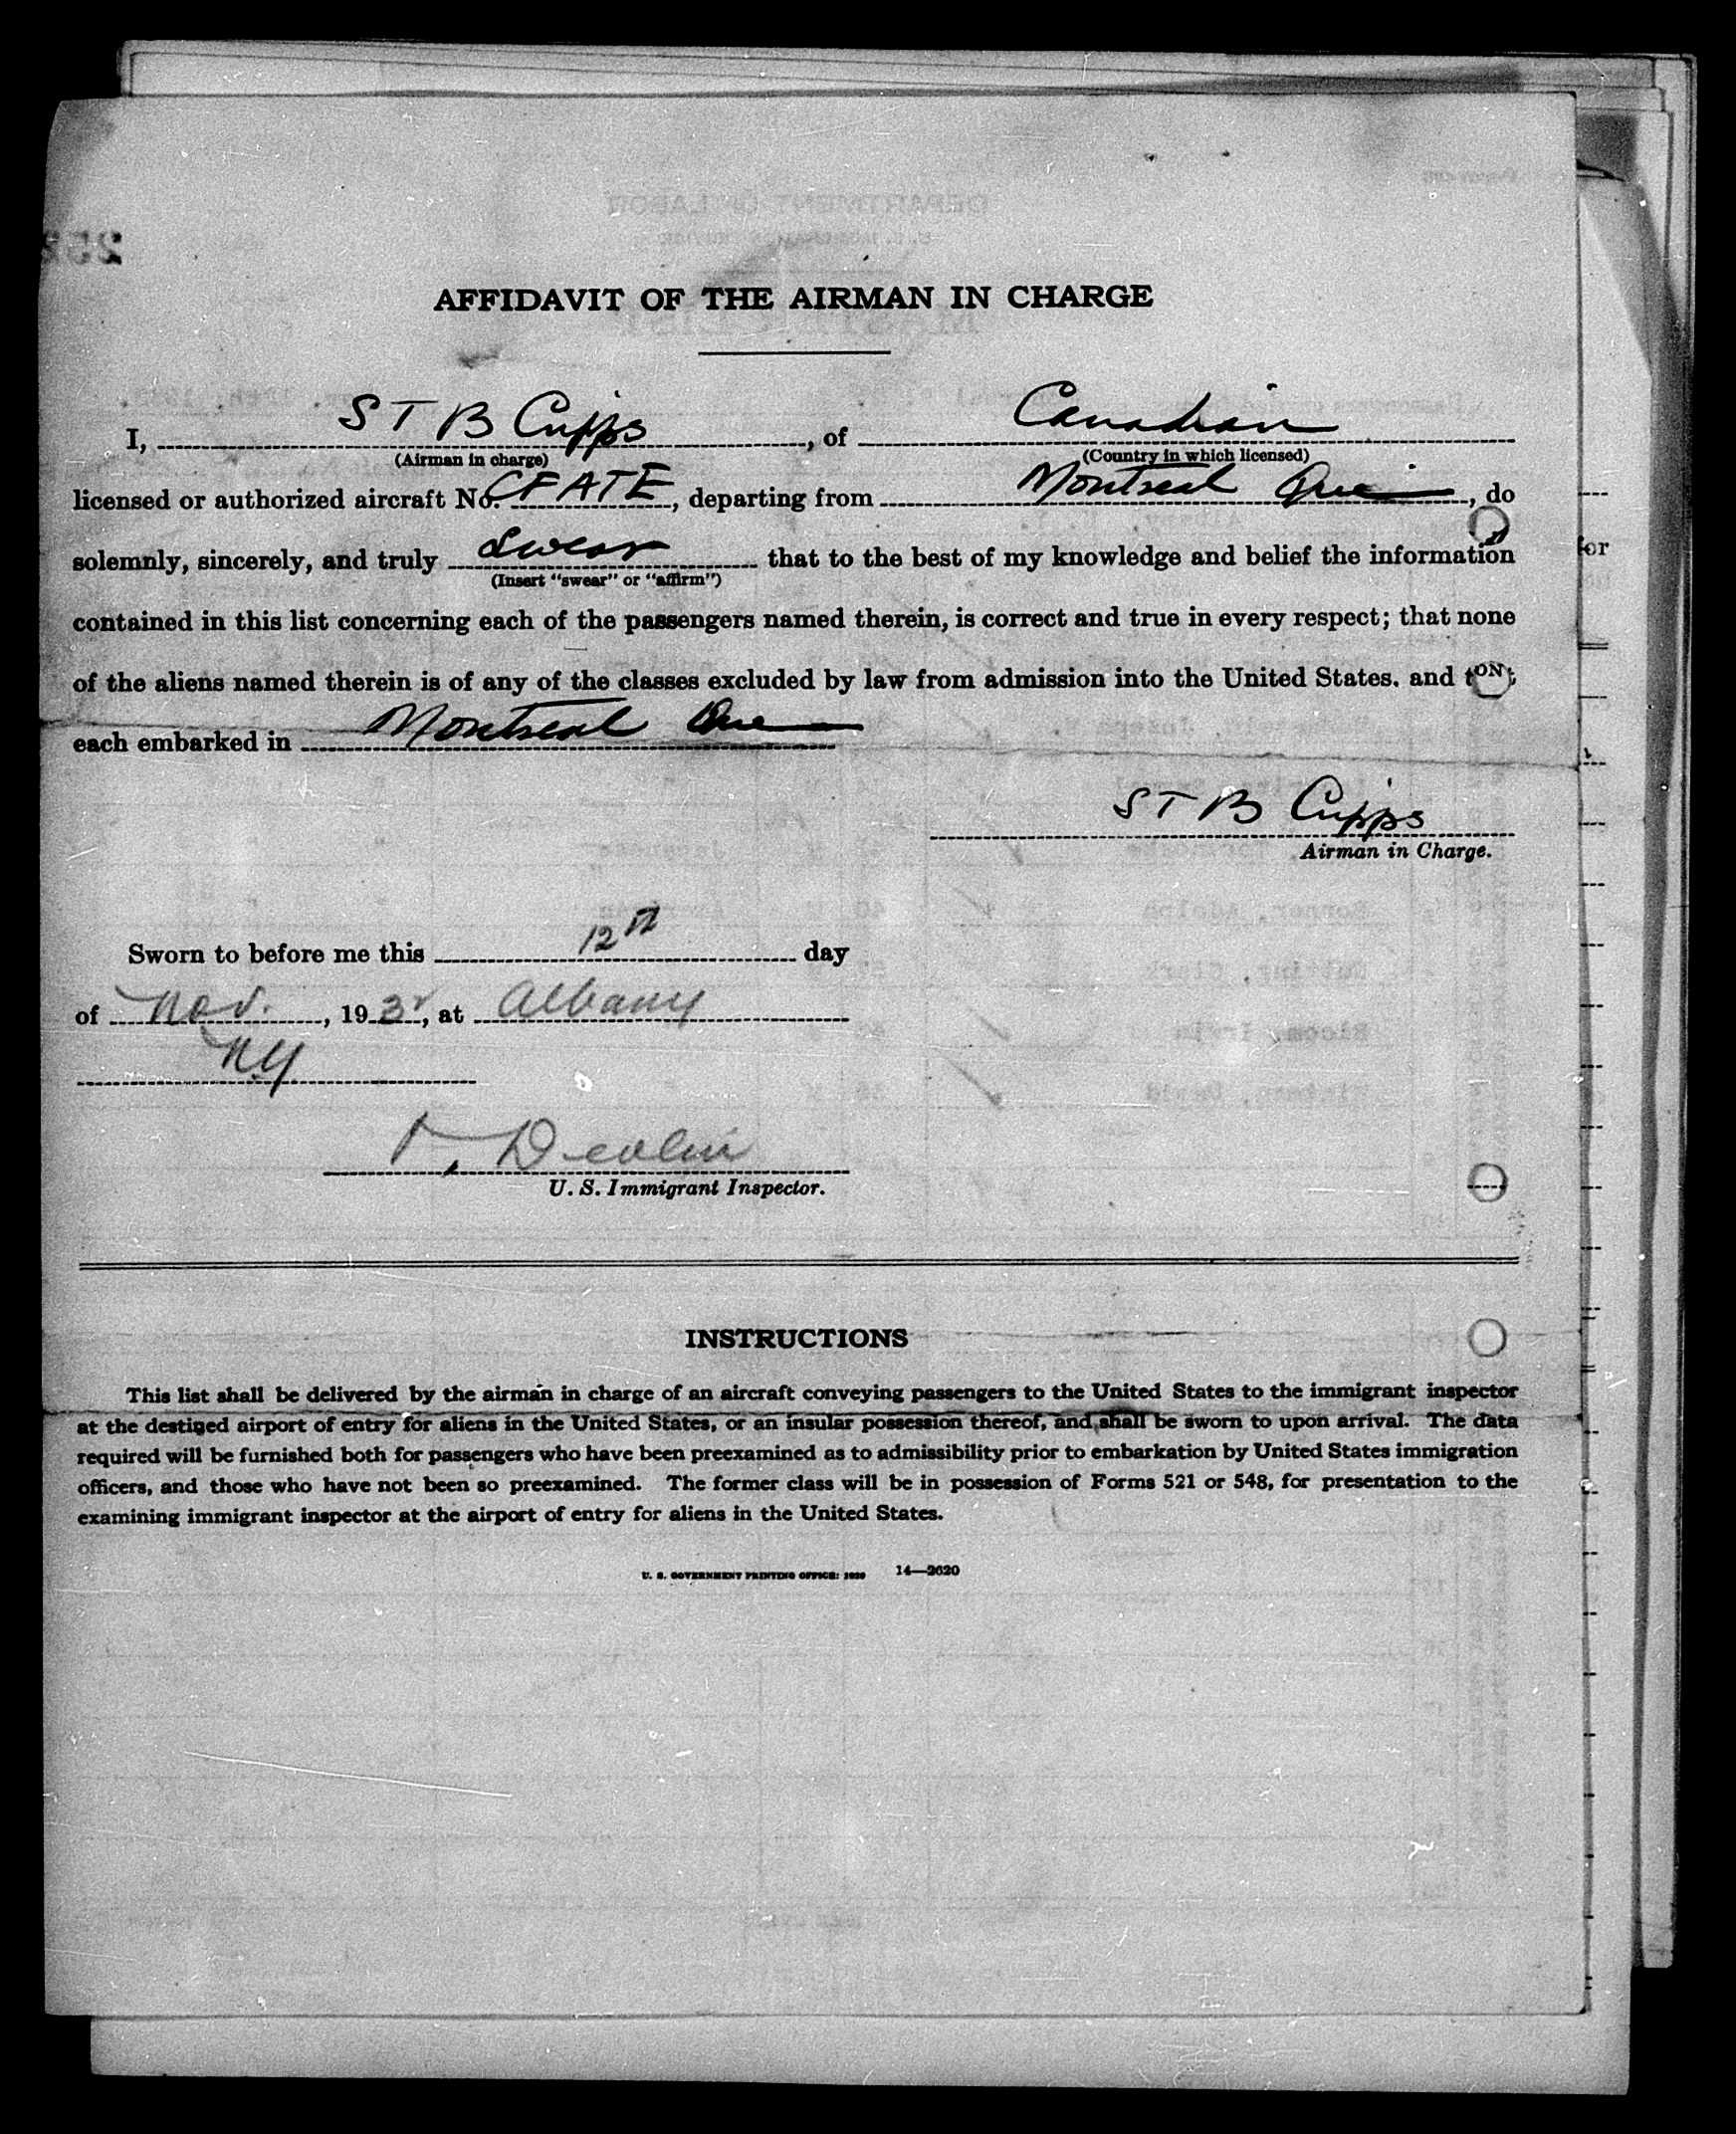 AFFIDAVIT OF THE AIRMAN IN CHARGE
I, S T B Cripps, of Canadian
(Airman in charge) (Country in which licensed)
licensed or authorized aircraft No. CFATE, departing from Montreal Que, do
solemnly, sincerely, and truly swear that to the best of my knowledge and belief the information
(Insert "swear" or "affirm")
contained in this list concerning each of the passengers named therein, is correct and true in every respect; that none
of the aliens named therein is of any of the classes excluded by law from admission into the United States, and
each embarked in Montreal Que
S T B Cripps
Airman in Charge.
Sworn to before me this 12th day
of Nov., 193, at Albany
NY
Devlin
U. S. Immigrant Inspector.
INSTRUCTIONS
This list shall be delivered by the airman in charge of an aircraft conveying passengers to the United States to the immigrant inspector
at the destined airport of entry for aliens in the United States, or an insular possession thereof, and shall be sworn to upon arrival. The data
required will be furnished both for passengers who have been preexamined as to admissibility prior to embarkation by United States immigration
officers, and those who have not been so preexamined. The former class will be in possession of Forms 521 or 548, for presentation to the
examining immigrant inspector at the airport of entry for aliens in the United States.
U. S. GOVERNMENT PRINTING OFFICE: 14—2620